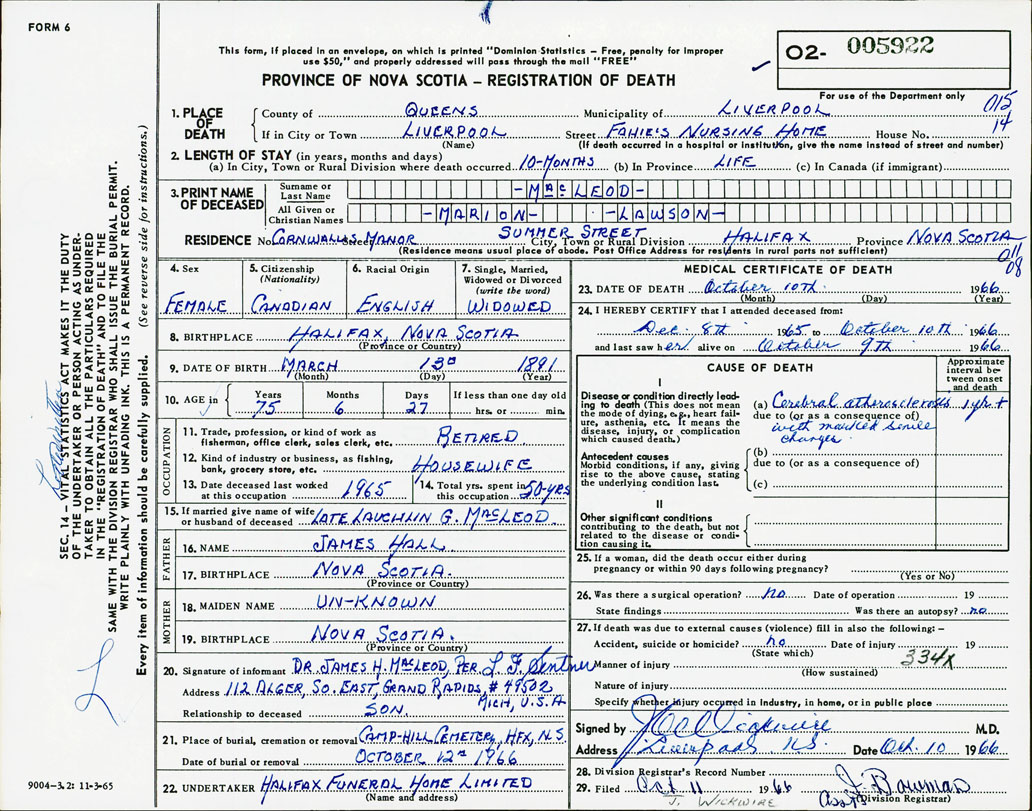 FORM 6
This form, if placed in an envelope, on which is printed "Dominion Statistics – Free, penalty for improper
use $50," and properly addressed will pass through the mail "FREE"
PROVINCE OF NOVA SCOTIA – REGISTRATION OF DEATH
O2- 005922
For use of the Department only
015
14
1. PLACE OF DEATH
County of QUEENS Municipality of LIVERPOOL
If in City or Town LIVERPOOL Street FAHIE'S NURSING HOME House No.
(Name) (If death occurred in a hospital or institution, give the name instead of street and number)
2. LENGTH OF STAY (in years, months and days)
(a) In City, Town or Rural Division where death occurred 10-MONTHS (b) In Province LIFE (c) In Canada (if immigrant)
3. PRINT NAME OF DECEASED
Surname or Last Name -MacLEOD-
All Given or Christian Names -MARION- -LAWSON-
RESIDENCE No. CORNWALLIS Street MANOR SUMMER STREET City, Town or Rural Division HALIFAX Province NOVA SCOTIA
(Residence means usual place of abode. Post Office Address for residents in rural parts not sufficient)
011
08
4. Sex FEMALE
5. Citizenship (Nationality) CANADIAN
6. Racial Origin ENGLISH
7. Single, Married, Widowed or Divorced (write the word) WIDOWED
8. BIRTHPLACE HALIFAX, NOVA SCOTIA
(Province or Country)
9. DATE OF BIRTH MARCH 13th 1891
(Month) (Day) (Year)
10. AGE in Years 75 Months 6 Days 27 If less than one day old hrs. or min.
OCCUPATION
11. Trade, profession, or kind of work as
fisherman, office clerk, sales clerk, etc. RETIRED
12. Kind of industry or business, as fishing,
bank, grocery store, etc. HOUSEWIFE
13. Date deceased last worked
at this occupation 1965
14. Total yrs. spent in
this occupation 50-YRS
15. If married give name of wife
or husband of deceased LATE LAUCHLIN G. MacLEOD
FATHER
16. NAME JAMES HALL
17. BIRTHPLACE NOVA SCOTIA.
(Province or Country)
MOTHER
18. MAIDEN NAME UN-KNOWN
19. BIRTHPLACE NOVA SCOTIA.
(Province or Country)
20. Signature of informant DR. JAMES H. MacLEOD, PER.
Address 112 ALGER, SO. EAST, GRAND RAPIDS, # 49502
MICH, U.S.A
Relationship to deceased SON.
21. Place of burial, cremation or removal CAMP-HILL CEMETERY, HFX, N.S.
Date of burial or removal OCTOBER 12th 1966
22. UNDERTAKER HALIFAX FUNERAL HOME LIMITED
(Name and address)
MEDICAL CERTIFICATE OF DEATH
23. DATE OF DEATH October 10th 1966
(Month) (Day) (Year)
24. I HEREBY CERTIFY that I attended deceased from:
Dec. 8th 1965 to October 10th 1966
and last saw her alive on October 9th 1966
CAUSE OF DEATH
Approximate interval between onset and death
I
Disease or condition directly lead-
ing to death (This does not mean
the mode of dying, e.g., heart fail-
ure, asthenia, etc. It means the
disease, injury, or complication
which caused death.)
(a) Cerebral atherosclerosis 1 yr +
due to (or as a consequence of)
with marked senile
changes
Antecedent causes
Morbid conditions, if any, giving
rise to the above cause, stating
the underlying condition last.
(b)
due to (or as a consequence of)
(c)
II
Other significant conditions
contributing to the death, but not
related to the disease or condi-
tion causing it.
25. If a woman, did the death occur either during
pregnancy or within 90 days following pregnancy?
(Yes or No)
26. Was there a surgical operation? no Date of operation 19
State findings Was there an autopsy? no
27. If death was due to external causes (violence) fill in also the following: –
Accident, suicide or homicide? no Date of injury 19
(State which)
334x
Manner of injury
(How sustained)
Nature of injury
Specify whether injury occurred in industry, in home, or in public place
Signed by Wickwire M.D.
Address Liverpool N.S. Date Oct. 10 1966
28. Division Registrar's Record Number
29. Filed Oct 11 1966
J. WICKWIRE
(Division Registrar)
SEC. 14 – VITAL STATISTICS ACT MAKES IT THE DUTY
OF THE UNDERTAKER OR PERSON ACTING AS UNDER-
TAKER TO OBTAIN ALL THE PARTICULARS REQUIRED
IN THE "REGISTRATION OF DEATH" AND TO FILE THE
SAME WITH THE DIVISION REGISTRAR WHO SHALL ISSUE THE BURIAL PERMIT.
WRITE PLAINLY WITH UNFADING INK. THIS IS A PERMANENT RECORD.
Every item of information should be carefully supplied. (See reverse side for instructions.)
9004-3.2: 11-3-65